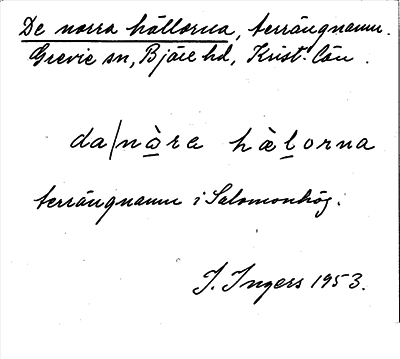 De norra hällorna, terrängnamn.
Grevie sn, Bjäre hd, Krist. län.
da/nàra hàlorna
terrängnamn i Salomonhög.
I. Ingers 1953.